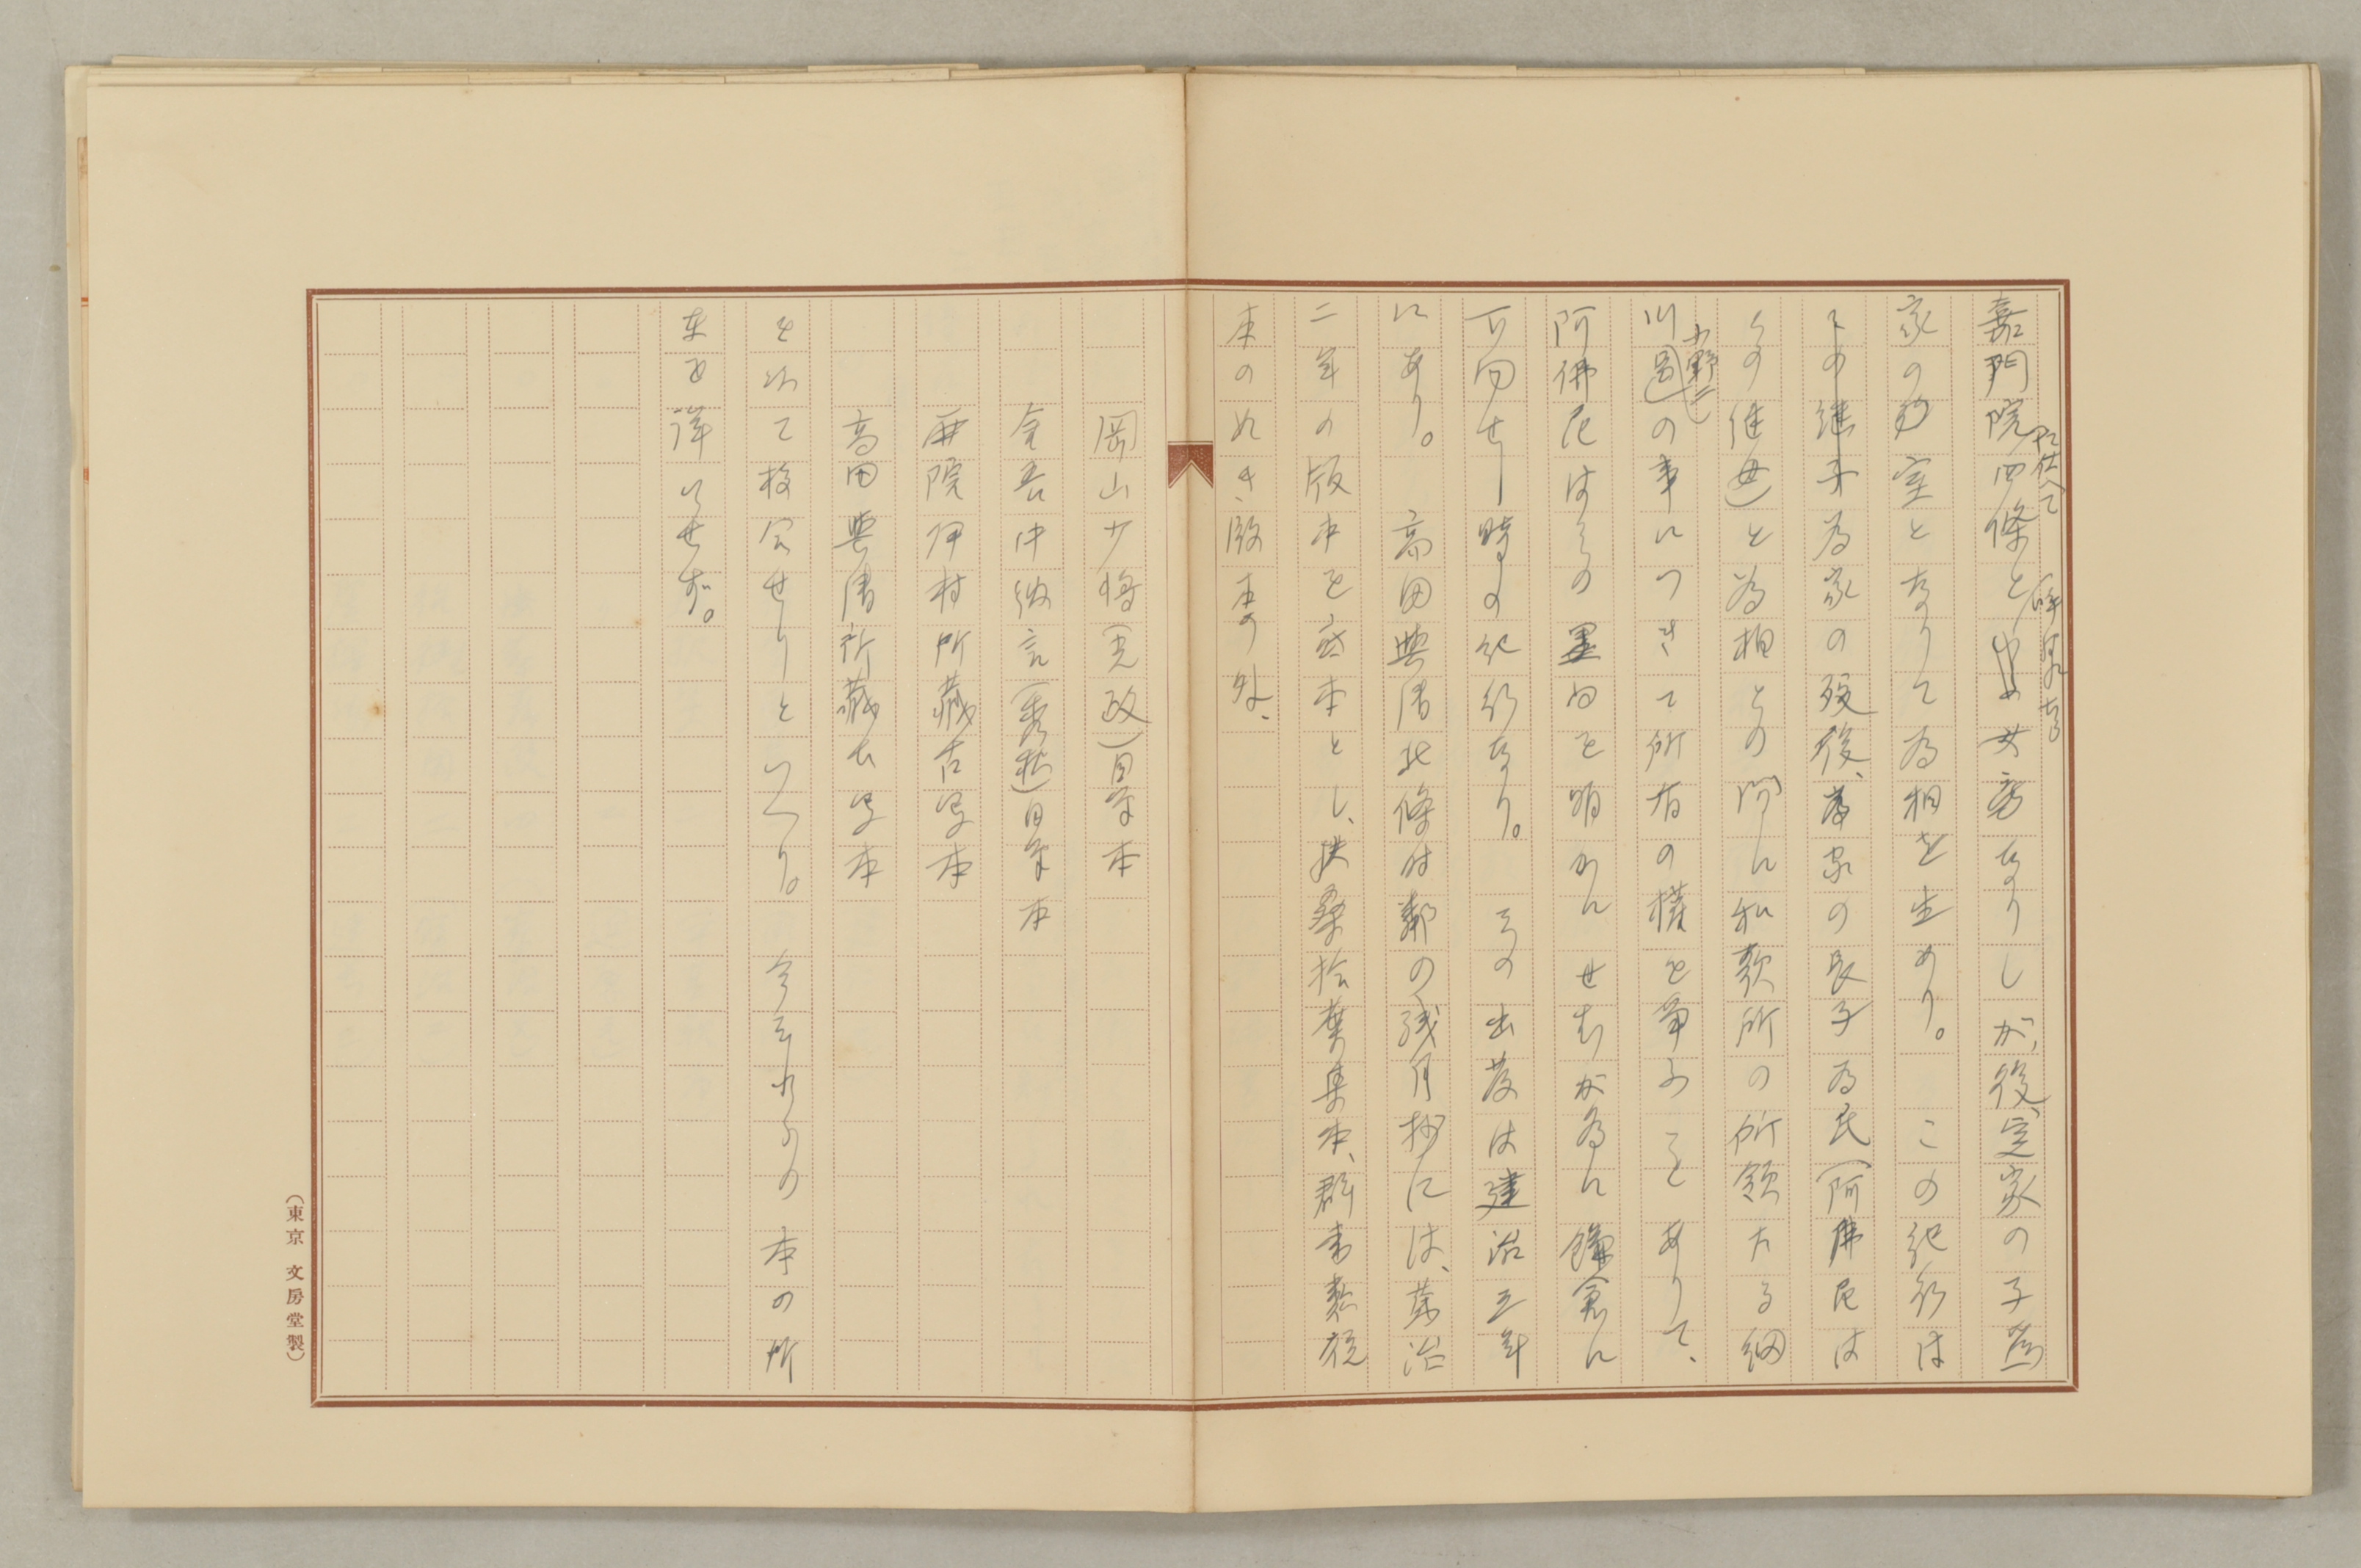 嘉門院に仕へて四條と呼ばれたる女房なりしが、後、定家の子為
家の妾室となりて為相を生めり。 この紀行は
為家の歿後、為家の長子為氏(阿佛尼は
その継母)と為相との間に和歌所の所領たる細
川(小野とも)の事につきて所有の權を爭ふことありて、
阿佛尼はその黒白を明かにせむが為に鎌倉に
下向せし時の紀行なり。 その出發は建治三年
にあり。 高田與清北條時鄰の残月抄には、萬治
二年の版本を底本とし、扶桑拾葉集本、群書類從
本のぬき、版本の外、
岡山少將(光政)自筆本
金吾中納言(秀秋)自筆本
西院伊村所藏古寫本
高田與清所藏古寫本
を以て校合せりといへり。 今それらの本の所
在を詳にせず。
(東京 文房堂製)